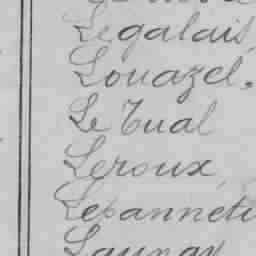 Legalais
Louazel.
Le Tual
Leroux
Lepannetier
Launay